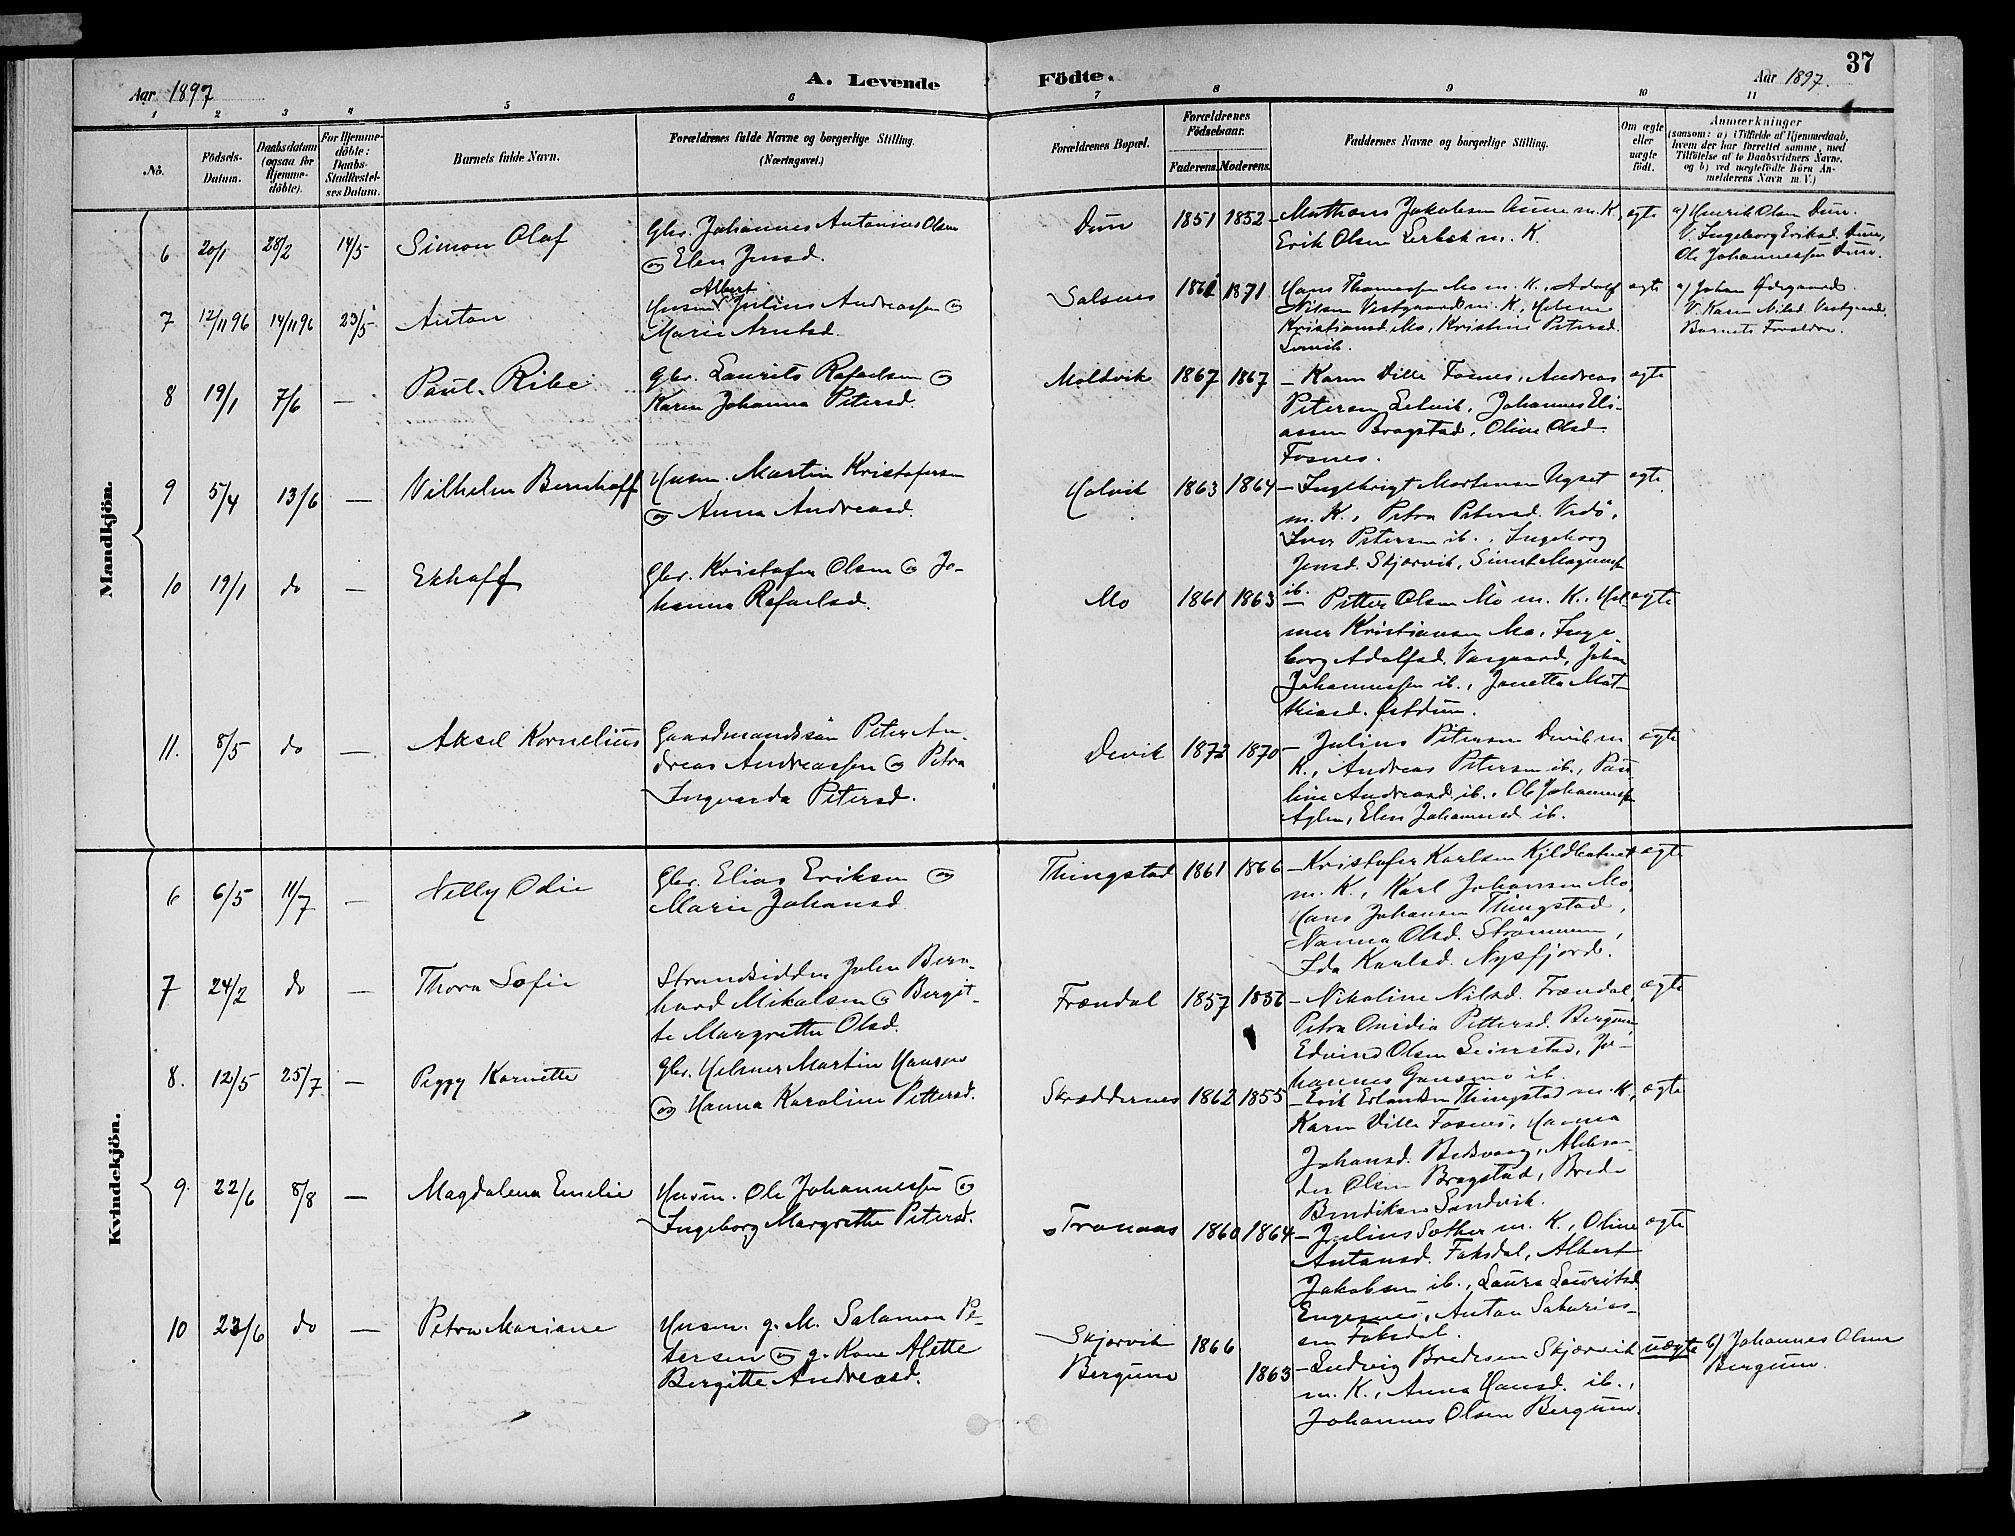 Aar 1897
A. Levende
Födte.
Aar 1897.
37
1 2 3 4 5 6 7 8 9 10 11
No.
Födsels-
Datum.
Daabsdatum
(ogsaa for
Hjemme-
döbte).
For Hjemme-
döbte:
Daabs-
Stadfæstel-
ses Datum.
Barnets fulde Navn.
Forældrenes fulde Navne og borgerlige Stilling.
(Næringsvei.)
Forældrenes Bopæl.
Forældrenes
Födselsaar.
Faderens. Moderens.
Faddernes Navne og borgerlige Stilling.
Om ægte
eller
uægte
födt.
Anmærkninger
(saasom: a) i Tilfælde af Hjemmedaab,
hvem der har forrettet samme, med
Tilföielse af to Daabsvidners Navne,
og b) ved uægtefödte Börn An-
melderens Navn m. V.)
Mandkjön.
6 20/1 28/2 14/5 Simon Olaf
Gbr. Johannes Antonius Olsen
og Elen Jensd.
Dun 1851 1852
Matheus Jakobsen Aune m. K.
Erik Olsen m. K.
ægte
a) Henrik Olsen Dun.
V. Ingeborg Eriksd. Dun,
Ole Johannessen Dun.
7 12/11 96 14/11 96 23/5 Anton
Albert
Husm. Julius Andreassen og
Marie Arntsd.
Salsnes 1861 1871
Hans Thomassen Mo m. K., Adolf
Nilsen Vestgaard m. K., Helene
Kristiansd. Mo, Kristine Petersd.
ægte
a) Johan Ødegaard.
V. Karen Nilsd. Vestgaard,
Barnets Forældre.
8 19/1 7/6 — Paul Ribe
Gbr. Laurits Rafaelsen og
Karen Johanna Petersd.
Moldvik 1867 1867
— Karen Dille Fosnes, Andreas
Petersen Leivik, Johannes Eli-
assen Bragstad, Oline Olsd.
Fosnes.
ægte
9 5/4 13/6 — Vilhelm Bernhoff
Husm. Martin Kristofersen
og Anna Andreasd.
Holvik 1863 1864
— Ingebrigt Mortensen
m. K., Petra Petersd. Vedø,
Iver Petersen ib., Ingeborg
Jensd. Skjærvik,
ib.
ægte
10 19/1 do — Ekhoff
Gbr. Kristofer Olsen og Jo-
hanna Rafaelsd.
Mo 1861 1863
— Petter Olsen Mo m. K., Hel-
mer Kristiansen Mo, Inge-
borg Adolfsd. Vasgaard, Johan
Johannessen ib., Janetta Mat-
hiasd. Østdun.
ægte
11. 8/5 do — Aksel Kornelius
Gaardmandssøn Peter An-
dreas Andreassen og Petra
Ingvarda Petersd.
Devik 1872 1870
— Julius Petersen Devik m.
K., Andreas Petersen ib., Pau-
line Andreasd. ib., Ole Johannessen
Aglen, Elen Johannesd. ib.
ægte
Kvindekjön.
6 6/5 11/7 — Nelly Odie
Gbr. Elias Eriksen og
Marie Johansd.
Thingstad 1861 1866
— Kristofer Karlsen
m. K., Karl Johansen Mo,
Hans Johansen Thingstad,
Nanna Olsd. Strømmen,
Ida Karlsd. Nysfjord.
ægte
7 24/2 do — Thora Sofie
Strandsidder John Bern-
hard Mikalsen og Bergit-
te Margrethe Olsd.
Frændal 1857 1856
— Nikoline Nilsd. Frændal,
Petra Ovidia Pettersd. Bergum,
Edvind Olsen Seinstad, Jo-
hannes Gansmo ib.
ægte
8. 12/5 25/7 — Peggy Karnette
Gbr. Helmer Martin Hansen
og Hanna Karoline Pettersd.
Skræddernes 1862 1855
— Erik Erlandsen Thingstad m. K.,
Karen Dille Fosnes, Hanna
Johansd. Bedsvaag, Aleksan-
der Olsen Bragstad, Brede
Bendiksen Sandvik.
ægte
9. 22/6 8/8 — Magdalena Emelie
Husm. Ole Johannessen og
Ingeborg Margrethe Petersd.
Tranaas 1860 1864
— Julius Sather m. K., Oline
Antonsd. Faksdal, Albert
Jakobsen ib., Laura Lauritsd.
Engesnes, Anton Sakarias-
sen Faksdal.
ægte
10 23/6 do — Petra Mariane
Husm. g. M. Salamon Pe-
tersen og g. Kone Alette
Bergitte Andreasd.
Skjærvik 1866
Bergum 1863
— Ludvig Bredesen Skjærvik
m. K., Anna Hansd. ib.,
Johannes Olsen Bergum.
uægte
b) Johannes Olsen
Bergum.